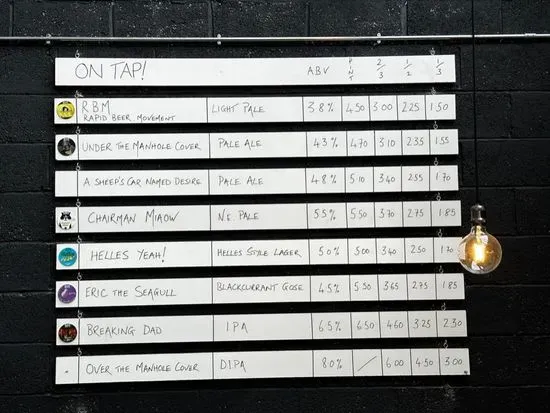 ON TAP! ABV PINT 2/3 1/2 1/3
RBM LIGHT PALE 3.8% 4.50 3.00 2.25 1.50
RAPID BEER MOVEMENT
UNDER THE MANHOLE COVER PALE ALE 4.3% 4.70 3.10 2.35 1.55
A SHEEP'S CAR NAMED DESIRE PALE ALE 4.8% 5.10 3.40 2.55 1.70
CHAIRMAN MIAOW N.E PALE 5.5% 5.50 3.70 2.75 1.85
HELLES YEAH! HELLES STYLE LAGER 5.0% 5.00 3.40 2.50 1.70
ERIC THE SEAGULL BLACKCURRANT GOSE 4.5% 5.50 3.65 2.75 1.85
BREAKING DAD I.P.A 6.5% 6.50 4.60 3.25 2.30
OVER THE MANHOLE COVER D.I.P.A 8.0% / 6.00 4.50 3.00